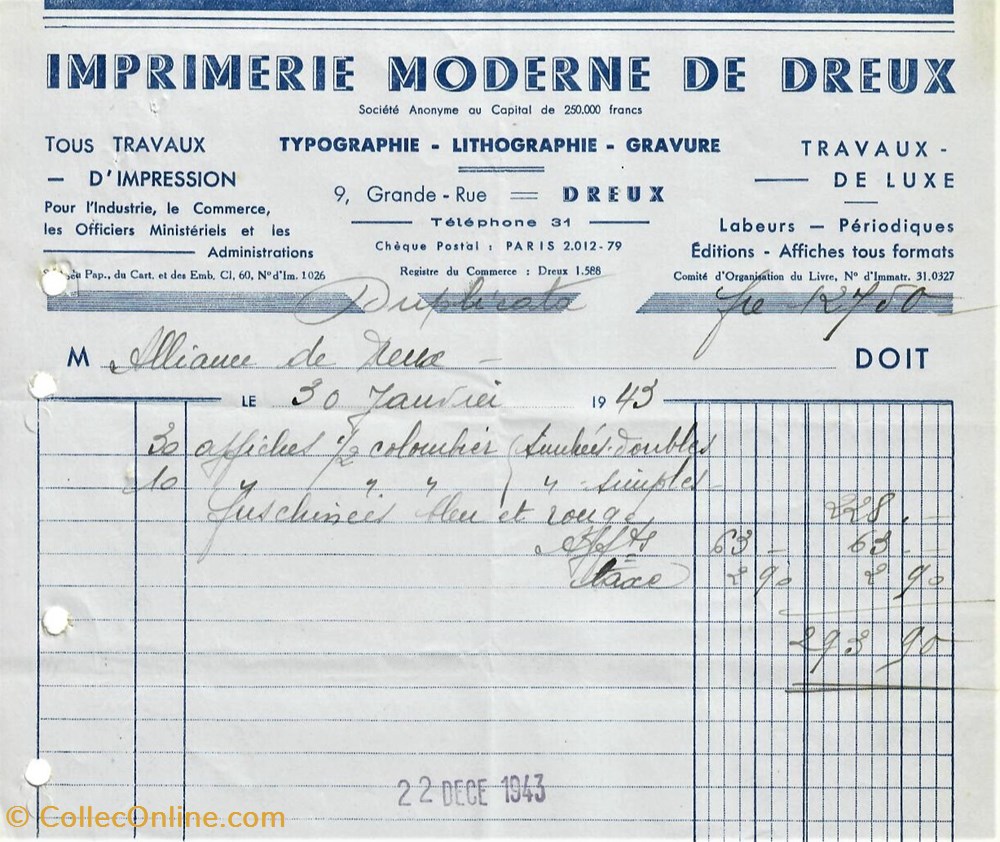 IMPRIMERIE MODERNE DE DREUX
Société Anonyme au Capital de 250.000 francs
TOUS TRAVAUX
— D'IMPRESSION
Pour l'Industrie, le Commerce,
les Officiers Ministériels et les
Administrations
Pap., du Cart. et des Emb. Cl, 60, N° d'Im. 1026
TYPOGRAPHIE - LITHOGRAPHIE - GRAVURE
9, Grande-Rue = DREUX
Téléphone 31
Chèque Postal : PARIS 2.012-79
Registre du Commerce : Dreux 1.588
TRAVAUX -
DE LUXE
Labeurs — Périodiques
Éditions - Affiches tous formats
Comité d'Organisation du Livre, N° d'Immatr. 31.0327
Duplicata fre 12750
M Alliance de Dreux — DOIT
LE 30 Janvier 1943
30 affiches 1/2 colombier doubles
10 " " " " simples -
bleu et rouge 228 . -
63 - 63 . -
taxe 2 90 2 90
293 90
22 DECE 1943
© CollecOnline.com